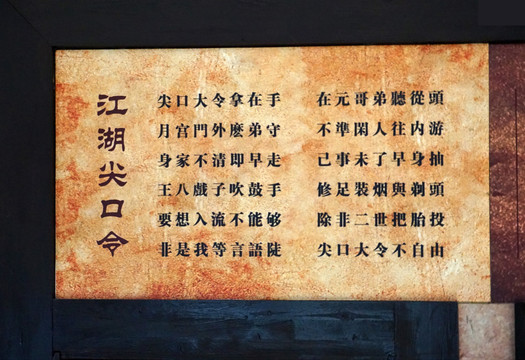 江湖尖口令
尖口大令拿在手
月宫門外麽弟守
身家不清即早走
王八戲子吹鼓手
要想入流不能够
非是我等言語陡
在元哥弟聽從頭
不準閑人往内游
己事未了早身抽
修足装烟與剃頭
除非二世把胎投
尖口大令不自由